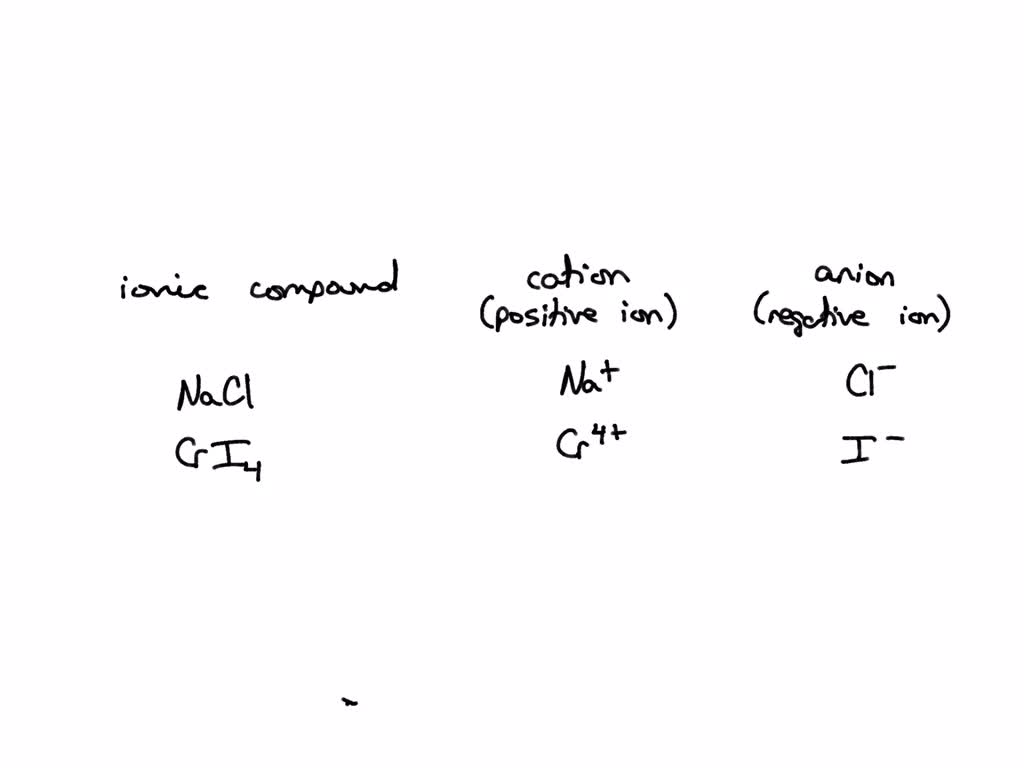 ionic compound cation anion
(positive ion) (negative ion)
NaCl Na⁺ Cl⁻
CrI₄ Cr⁴⁺ I⁻